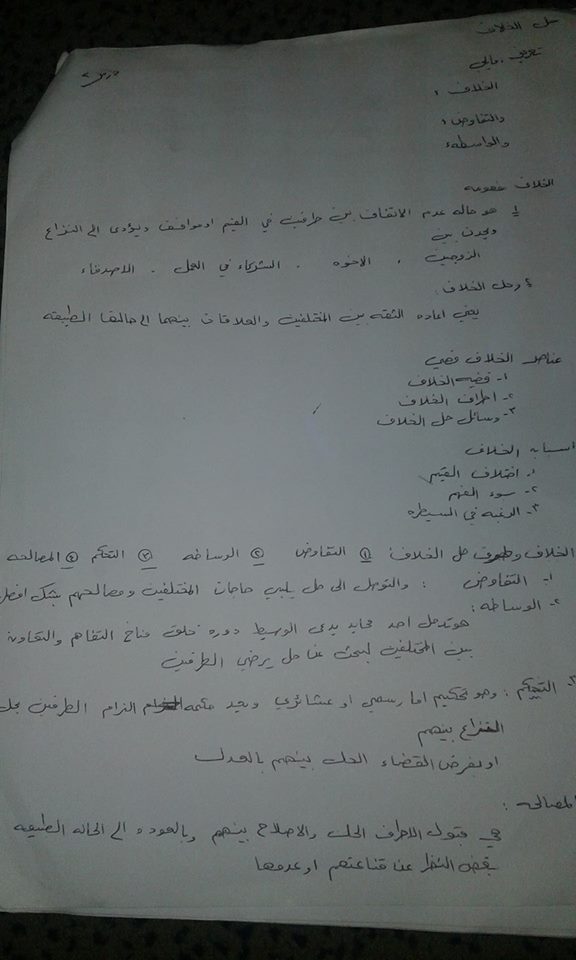 حل الخلاف
تعريف مايلي
الخلاف :
والتفاوض :
والواسطه :
الخلاف مفهومه
1 هو حاله عدم الاتفاق بين طرافين في القيم او مواقف ويؤدي الى النزاع
ويحدث بين
الزوجين ، الاخوه . الشركاء في العمل . الاصدقاء
وحل الخلاف :
يعني اعاده الثقه بين المختلفين والعلاقات بينهما الى حالتها الطبيعه
عناصر الخلاف فهي
١- قضيه الخلاف
٢- اطراف الخلاف
٣- وسائل حل الخلاف
اسبابه الخلاف
١- اختلاف القيم
٢- سوء الفهم
٣- الرغبه في السيطره
الخلاف وطرق حل الخلاف : ١ التفاوض ٢ الوساطه ٣ التحكم ٤ المصالحه
١- التفاوض : والتوصل الى حل يلبي حاجات المختلفين ومصالحهم بشكل افضل
٢- الوساطه :
هو تدخل احد محايد يدعى الوسيط دوره خلق مناخ التفاهم والتعاون
بين المختلفين لبحث عن حل يرضي الطرفين
٣- التحكم : وهو تحكيم اما رسمي او عشائري وبعد حكمه الزام الطرفين بحل
النزاع بينهم
او يفرض القضاء الحل بينهم بالعدل
المصالحه :
هي قبول الاطرف الحل والاصلاح بينهم وبالعوده الى الحاله الطبيعه
بغض النظر عن قناعتهم او عدمها